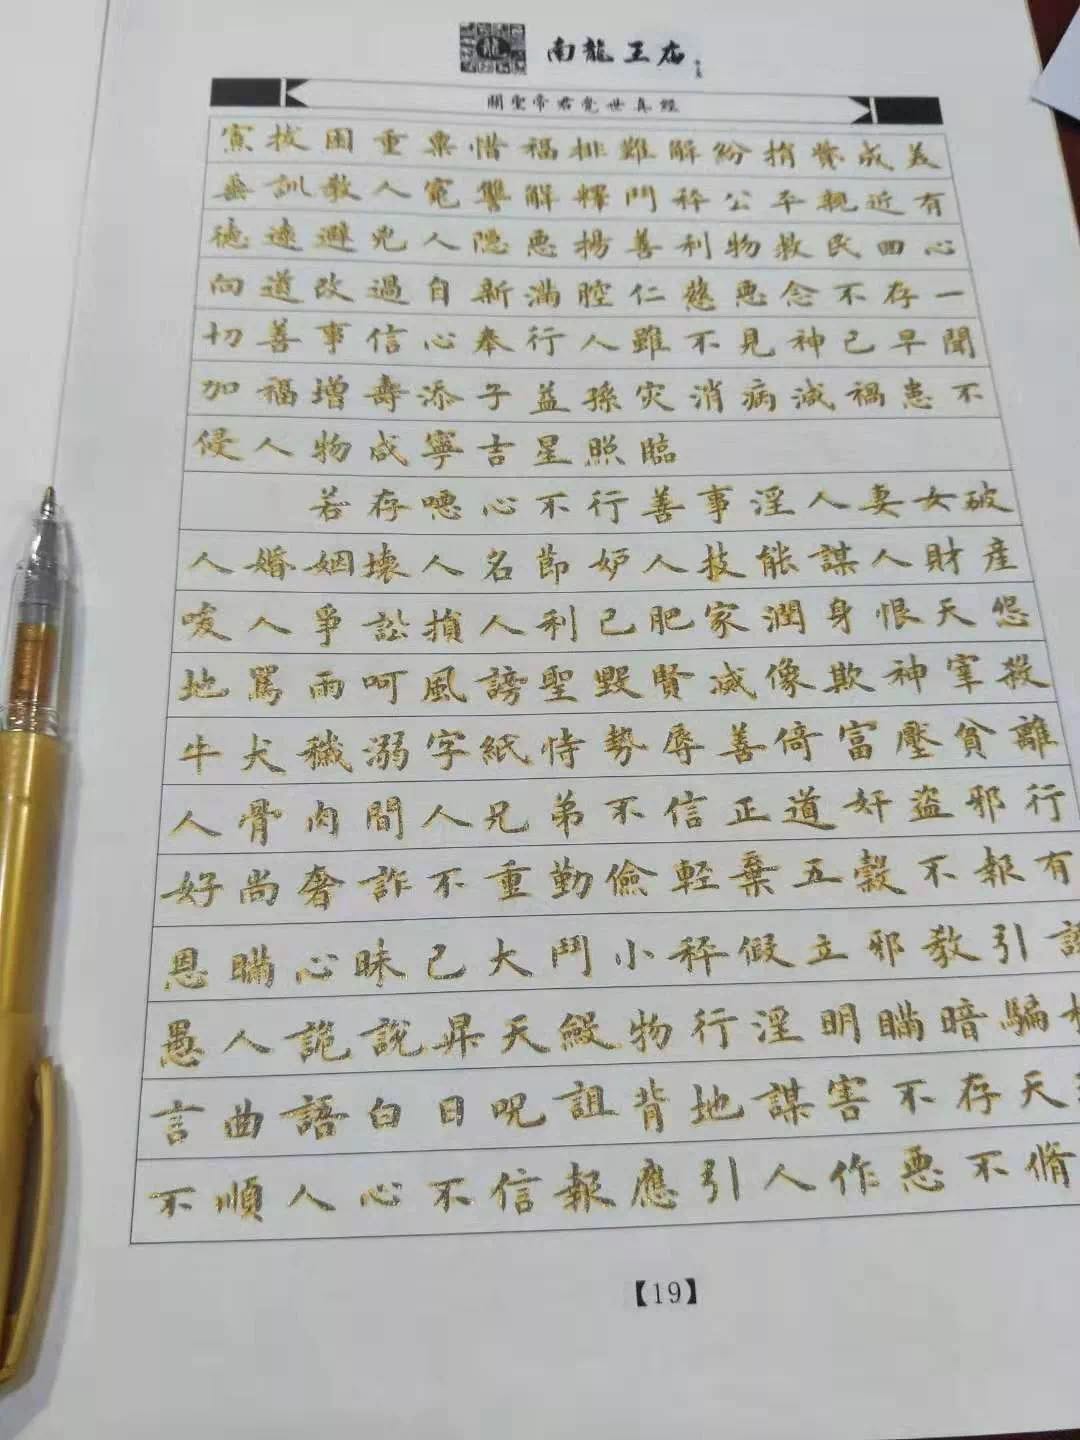 南龍王店
關聖帝君覺世真經
寡拔困重粟惜福排難解紛捐資成美
垂訓教人寃讐解釋鬥秤公平親近有
德遠避兇人隐惡揚善利物救民回心
向道改過自新滿腔仁慈惡念不存一
切善事信心奉行人雖不見神已早聞
加福增壽添子益孫灾消病減禍患不
侵人物咸寧吉星照臨
若存噁心不行善事淫人妻女破
人婚姻壞人名節妒人技能謀人財產
唆人爭訟損人利己肥家潤身恨天怨
地罵雨呵風謗聖毀賢滅像欺神宰殺
牛犬穢溺字紙恃勢辱善倚富壓貧離
人骨肉間人兄弟不信正道奸盜邪行
好尚奢詐不重勤儉輕棄五穀不報有
恩瞞心昧己大鬥小秤假立邪教引
愚人詭說昇天斂物行淫明瞞暗騙
言曲語白日呪詛背地謀害不存天
不順人心不信報應引人作惡不脩
【19】